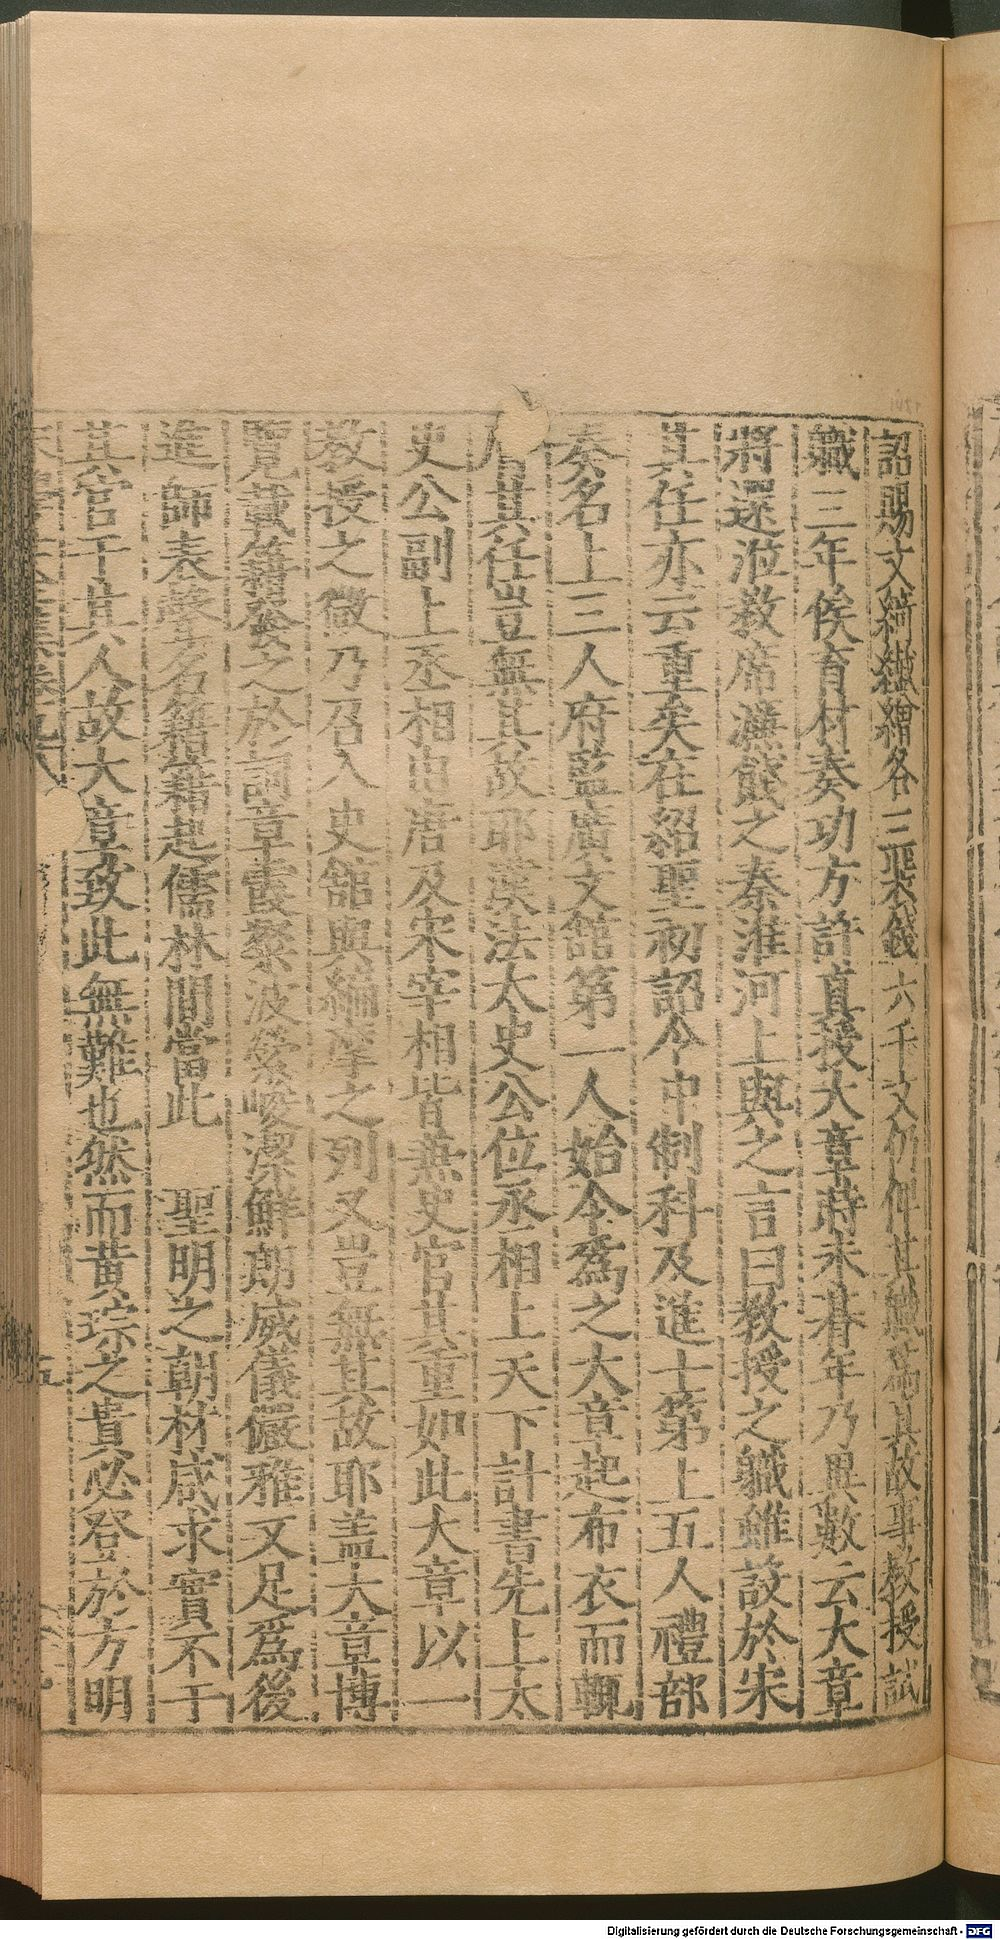 詔賜文綺纎繒各三襲錢六千文仍俾其職為其故事教授試
職三年俟育材奏功方許真授大章時未朞年乃異數云大章
將還涖教席濂餞之秦淮河上與之言曰教授之職雖設於宋
其任亦云重矣在紹聖初詔令中制科及進士第上五人禮部
奏名上三人府監廣文館第一人始令為之大章起布衣而輙
居其任豈無其故耶漢法太史公位丞相上天下計書先上太
史公副上丞相由唐及宋宰相皆兼史官其重如此大章以一
教授之微乃召入史舘與編摩之列又豈無其故耶盖大章博
覽載籍發之於詞章霞粲波縈峻潔鮮朗威儀儼雅又足為後
進師表聲名籍籍起儒林間當此 聖明之朝材咸求實不于
其官于其人故大章致此無難也然而黄琮之貴必登於方明
五
Digitalisierung gefördert durch die Deutsche Forschungsgemeinschaft - DFG